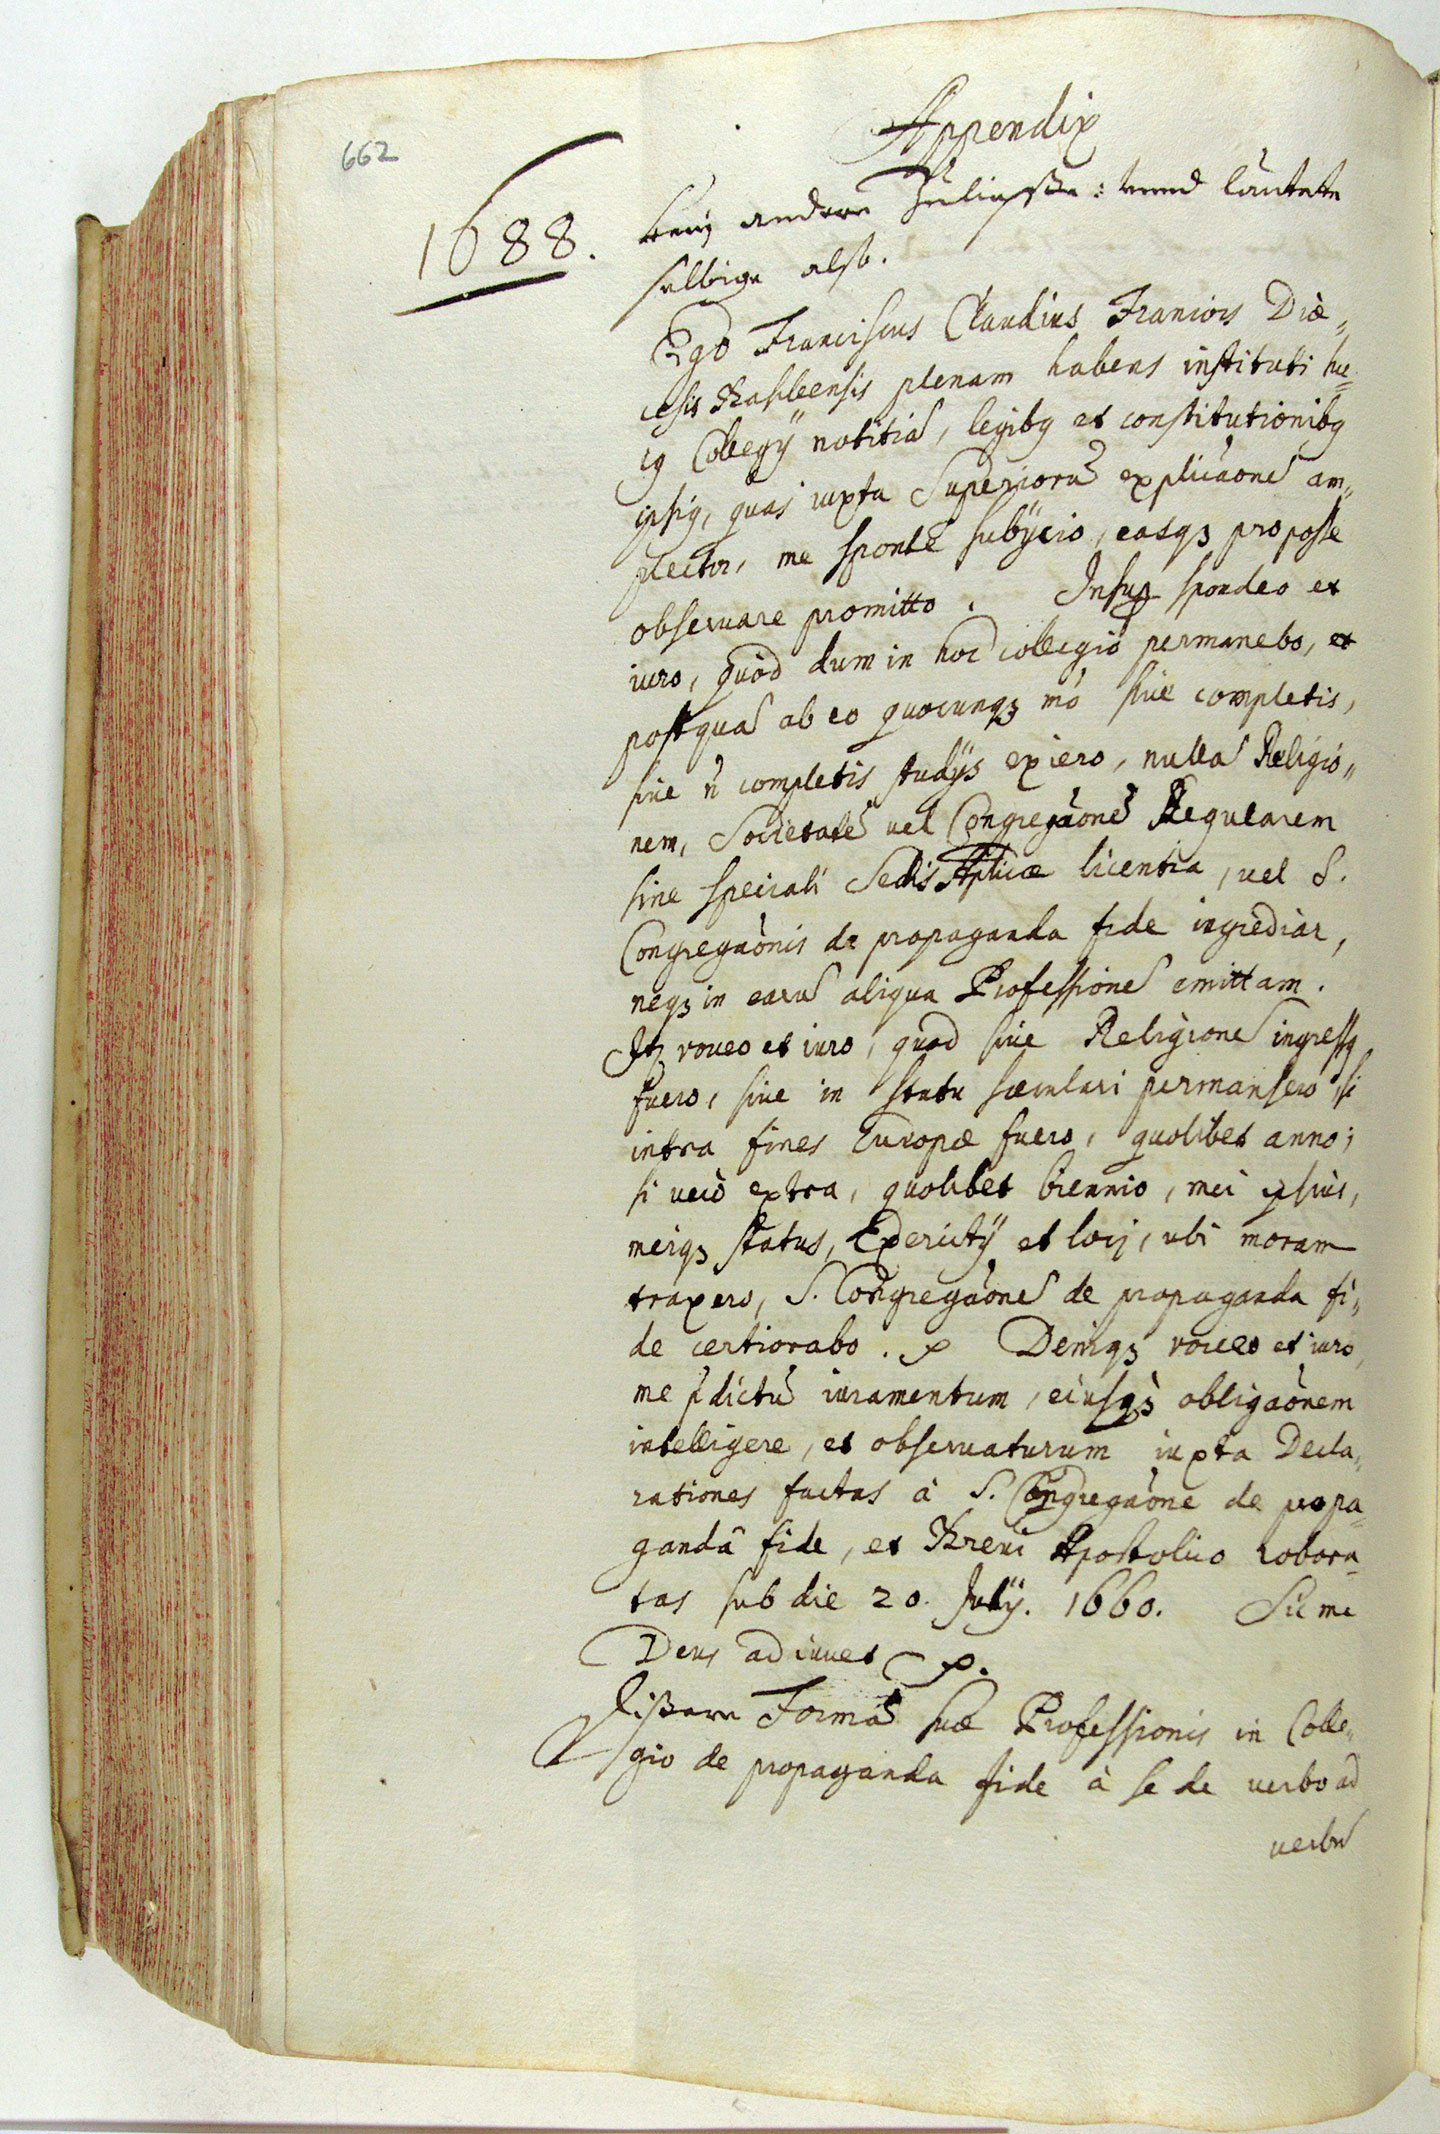 662
Appendix
1688.
kein andere Zuliesse: vnnd lautete
selbige also.
Ego Franciscus Claudius Francois Diœ-
cesis Basileensis plenam habens instituti hu-
ig Collegÿ notitiā, legibg et constitutionibg
ipsig, quas iuxta Superiorū explicāonē am-
plector, me spontē subÿcio, easqȝ pro posse
obseruare promitto. Insup spondeo et
iuro, quòd dum in hoc collegio permanebo, et
postquā ab eo quocunqȝ mō siue completis,
siue n̄ completis studÿs exiero, nullā Religio-
nem, Societatē uel Congregāonē Regularem
sine speciali Sedis Aplicæ licentia, uel S.
Congregāonis de propaganda fide ingrediar,
neqȝ in earū aliqua Professionē emittam.
Itȝ voueo et iuro, quod siue Religionē ingressg
fuero, siue in statu sæculari permansero, si
intra fines Europæ fuero, quolibet anno;
si uerò extra, quolibet biennio, mei ipsius,
meiqȝ status, Exercitÿ et locij, ubi moram
traxero, S. Congregāonē de propaganda fi-
de certiorabo. Deniqȝ voueo et iuro,
me p̄dictū iuramentum, eiusqȝ obligāonem
intelligere, et obseruaturum iuxta Decla-
rationes factas à S. Congregāone de propa-
gandâ fide, et Breui Apostolico robora-
tas sub die 20. Julÿ. 1660. Sic me
Deus adiuuet
Formā suæ Professionis in Colle-
gio de propaganda fide à se de uerbo ad
uerbū